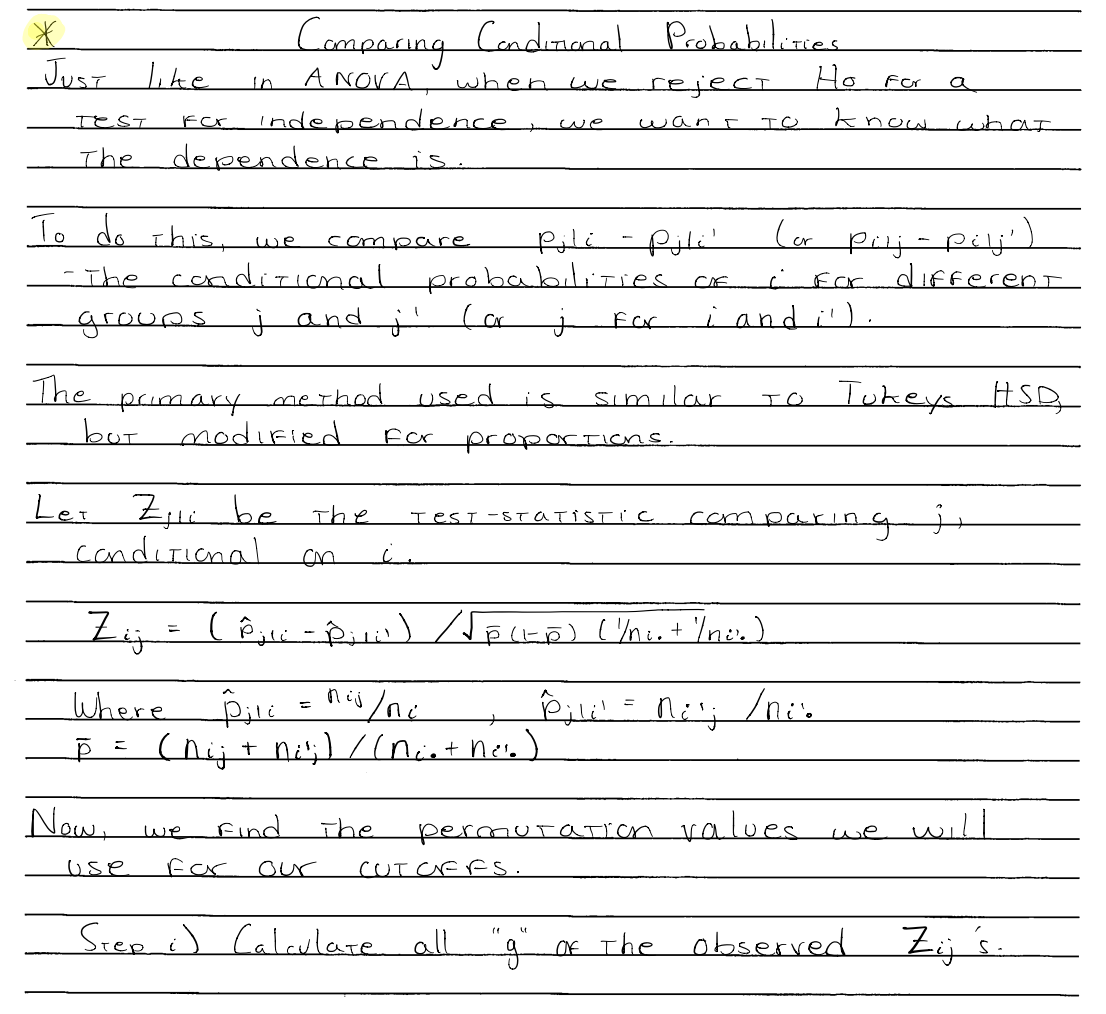 * Comparing Conditional Probabilities
Just like in ANOVA, when we reject Ho for a
test for independence, we want to know what
the dependence is.
To do this, we compare pj|i - pj|i' (or pi|j - pi|j')
- The conditional probabilities of i for different
groups j and j' (or j for i and i').
The primary method used is similar to Tukeys HSD,
but modified for proportions.
Let Zj|i be the test-statistic comparing j,
conditional on i.
Zij = (p̂j|i - p̂j|i') / √p̄(1-p̄) (1/ni. + 1/ni'.)
Where p̂j|i = nij/ni , p̂j|i' = ni'j /ni'.
p̄ = (nij + ni'j) / (ni. + ni'.)
Now, we find the permutation values we will
use for our cutoffs.
Step i) Calculate all "g" of the observed Zij's.